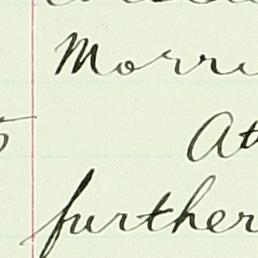 Morri
At
further